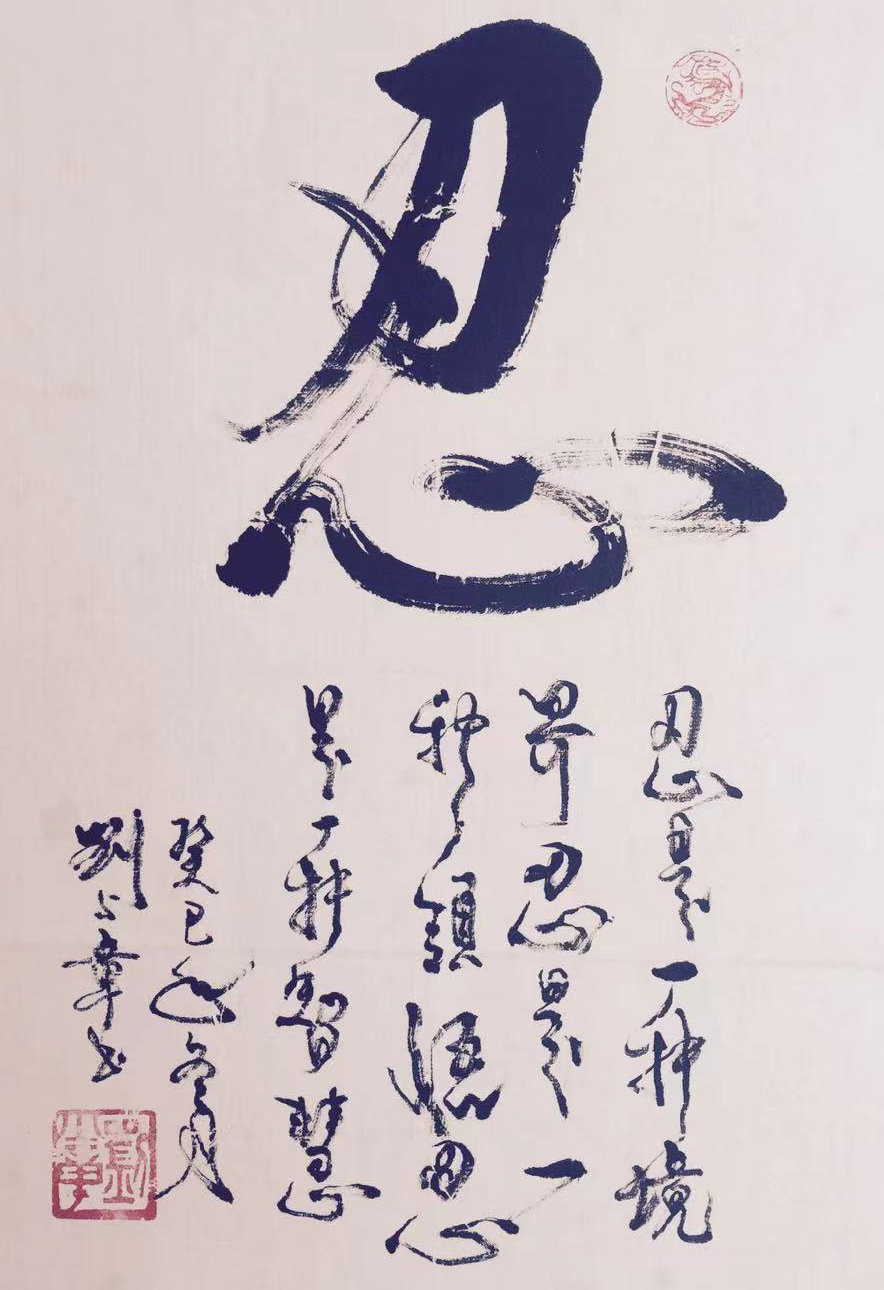 忍
忍是一种境
界忍是一
种领悟忍
是一种智慧
癸巳年冬月
刘占章书